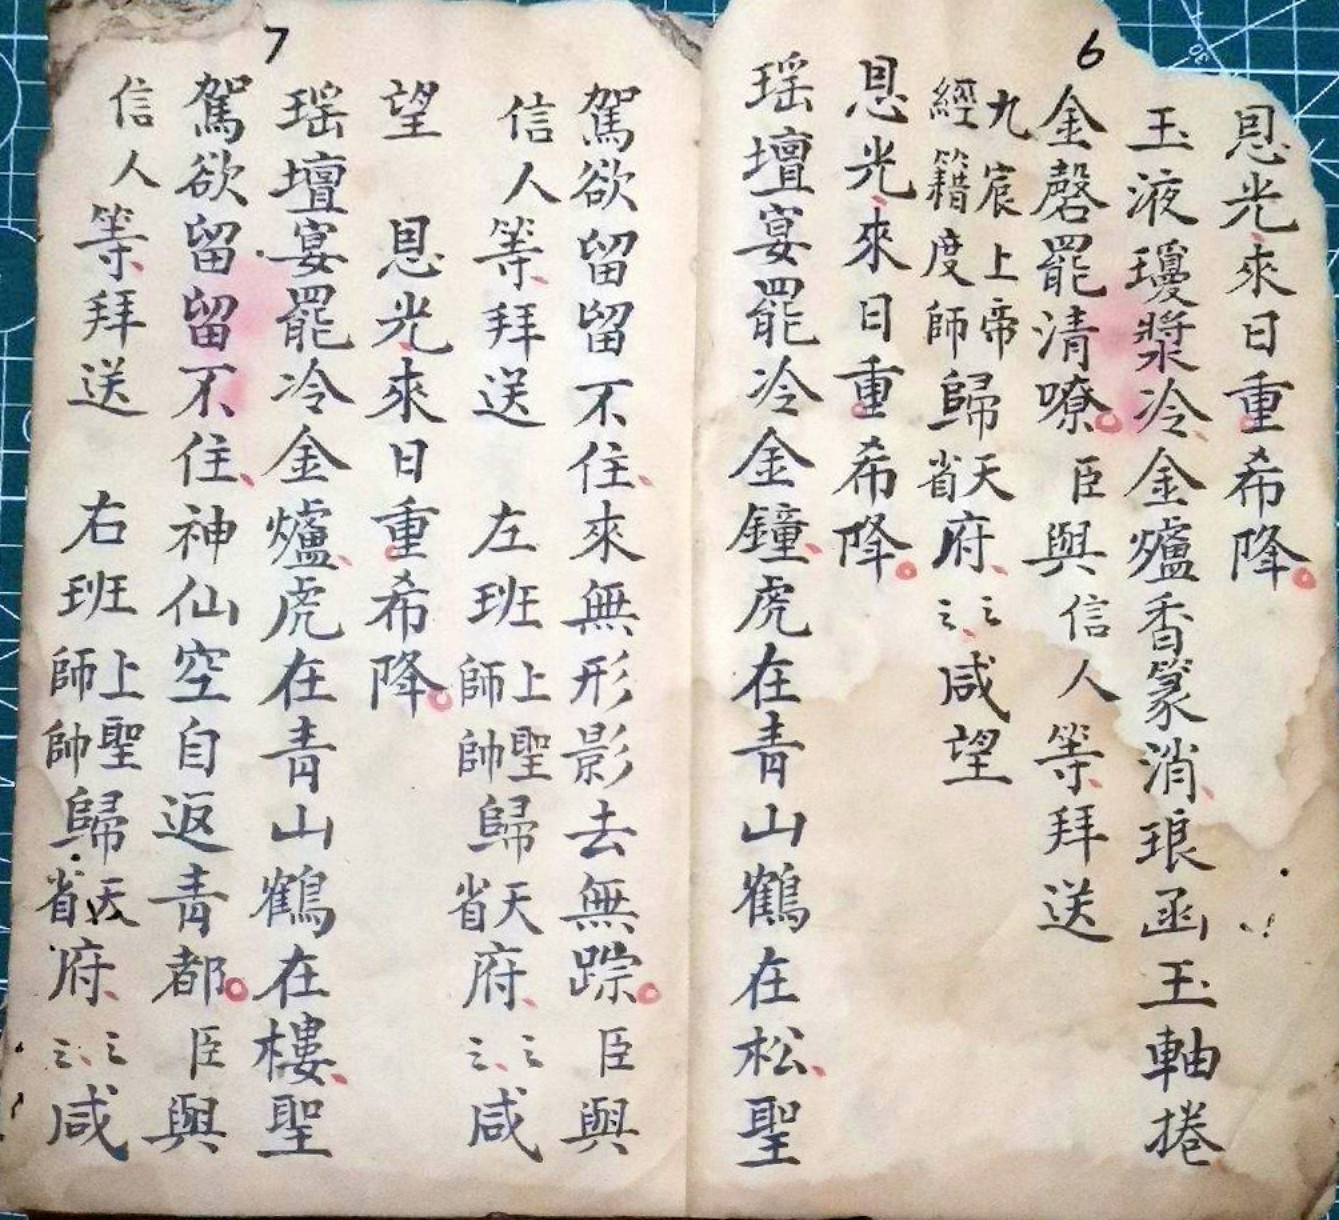 6
恩光來日重希降
玉液瓊漿冷金爐香篆消琅函玉軸捲
金磬罷清嘹臣與信人等拜送
九宸上帝
經籍度師
歸
天
省
府
咸望
恩光來日重希降
瑶壇宴罷冷金鐘虎在青山鶴在松聖
7
駕欲留留不住來無形影去無踪臣與
信人等拜送 左班
上聖
師帥
歸
天
省
府
咸
望 恩光來日重希降
瑶壇宴罷冷金爐虎在青山鶴在樓聖
駕欲留留不住神仙空自返青都臣與
信人等拜送 右班
上聖
師帥
歸
天
省
府
咸